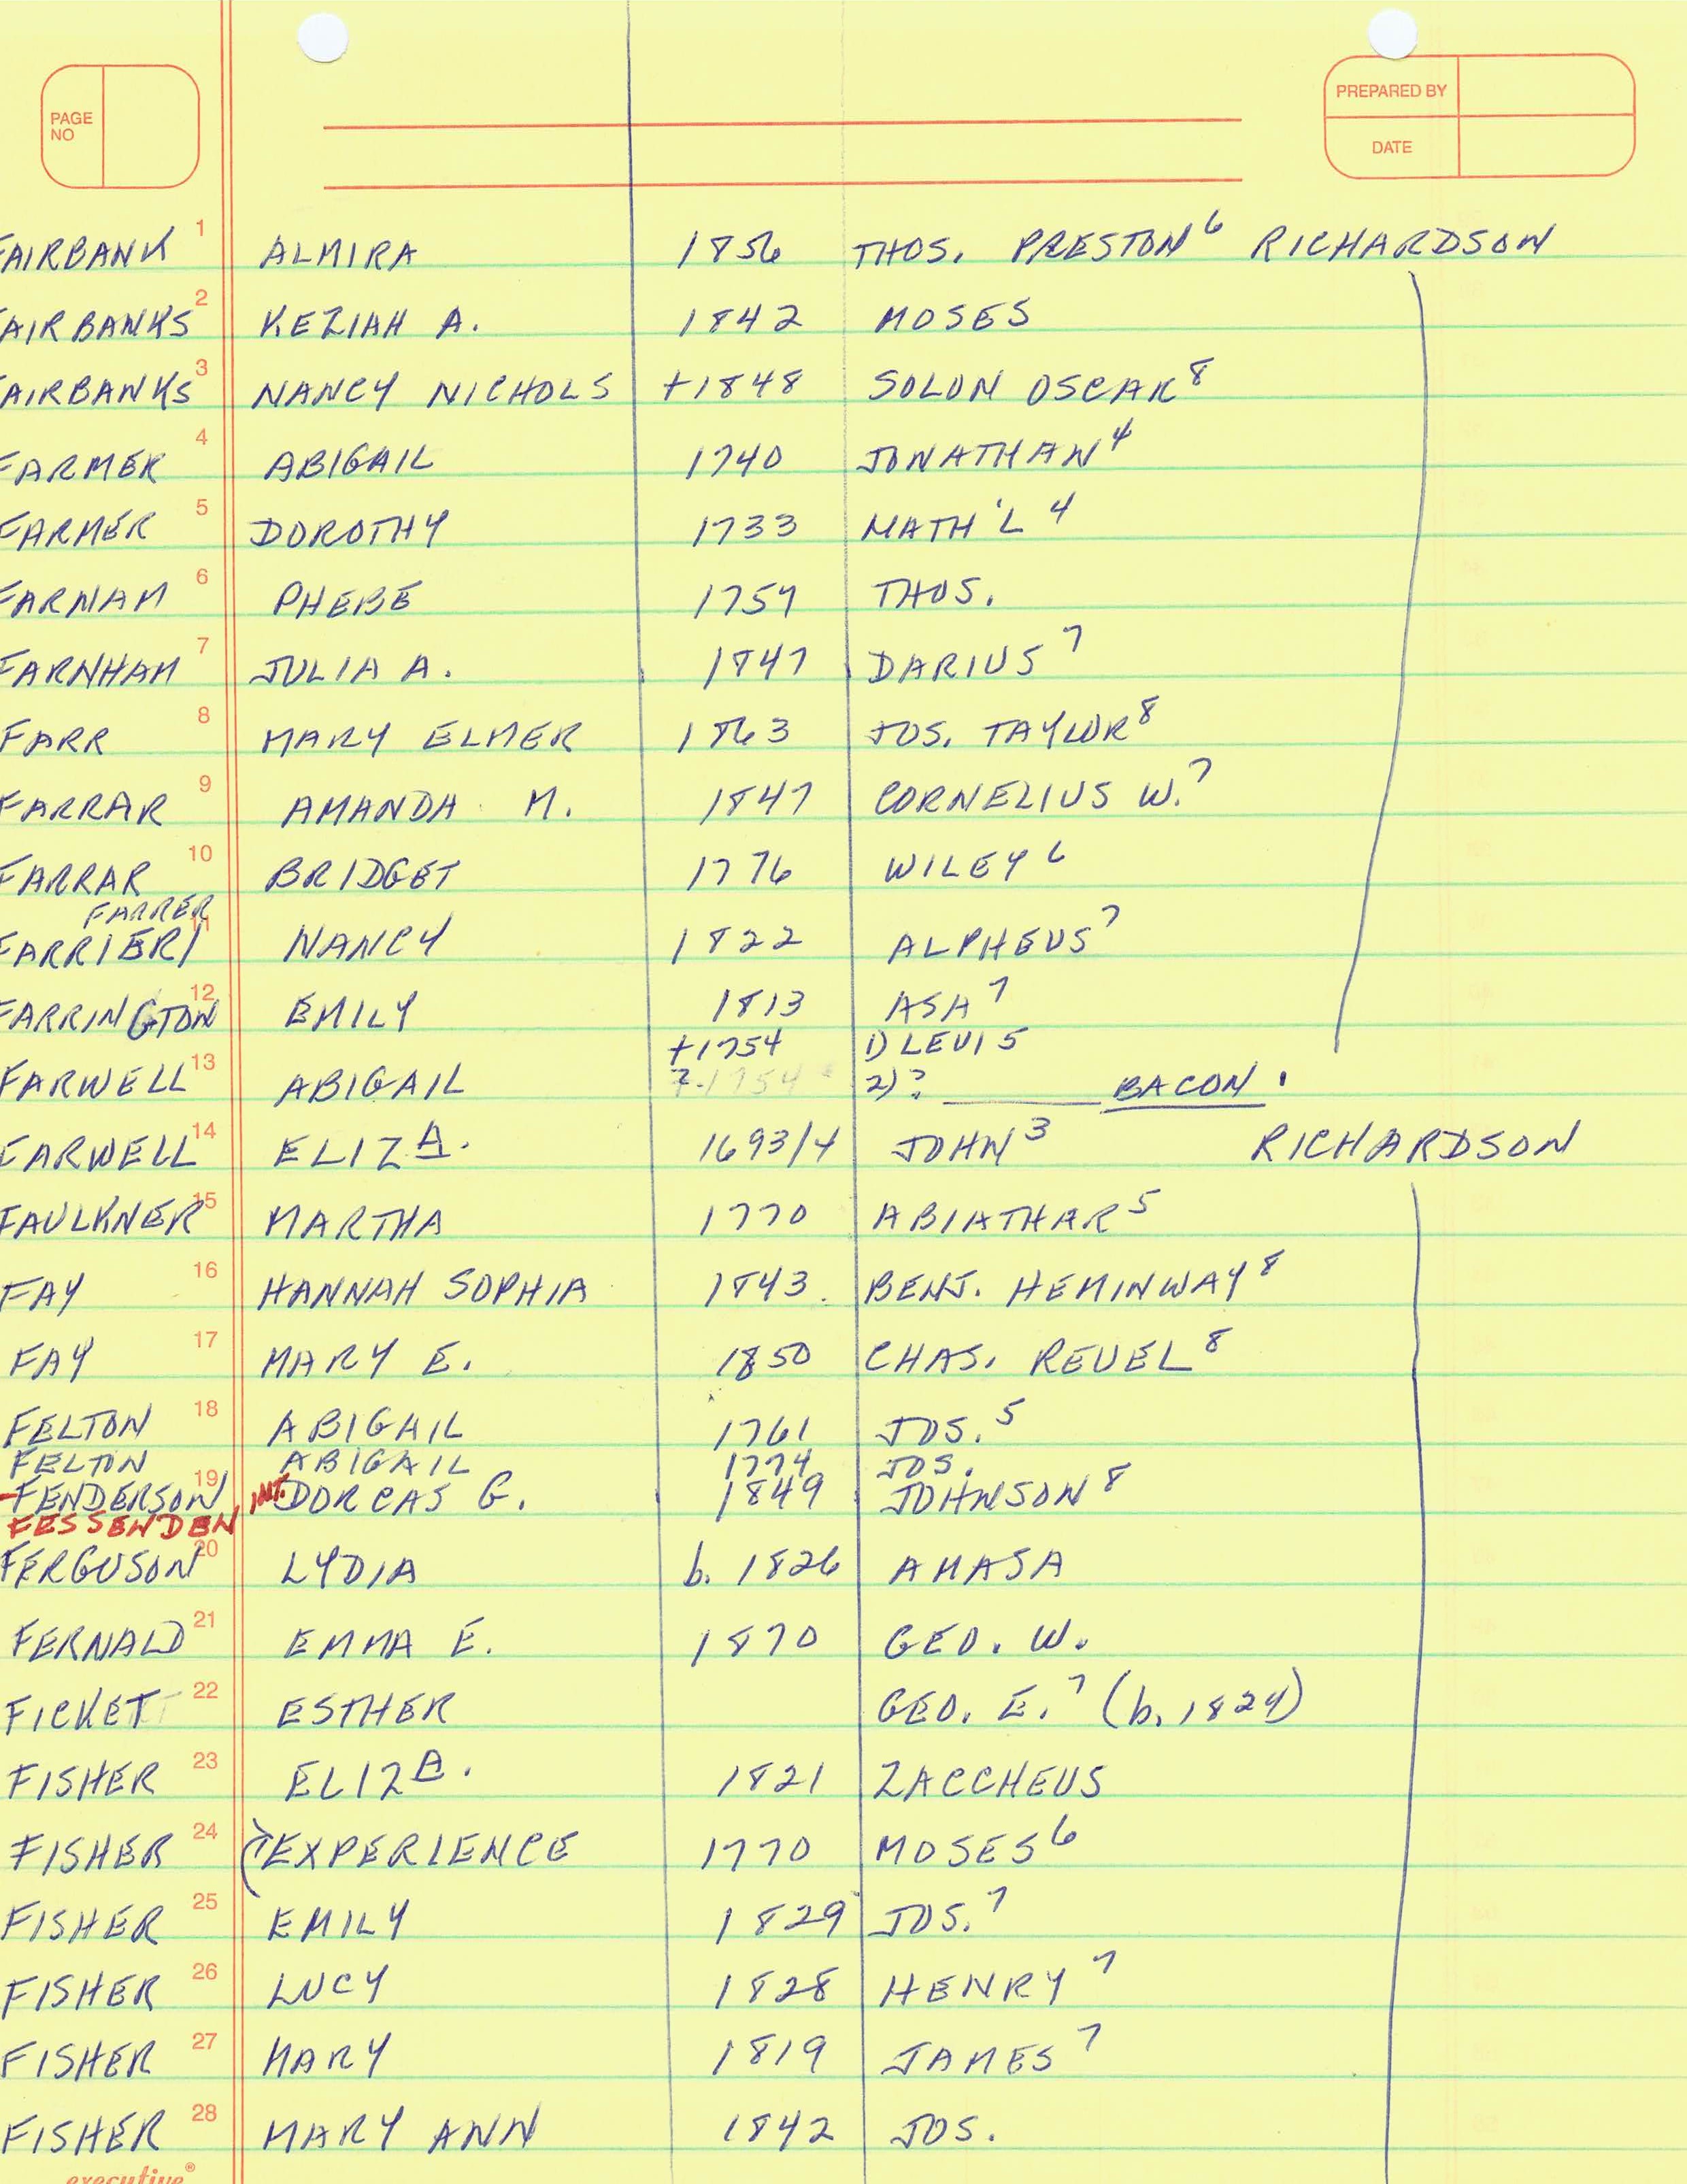 PAGE NO
PREPARED BY
DATE
1 FAIRBANK ALMIRA 1856 THOS. PRESTON⁶ RICHARDSON
2 FAIRBANKS KEZIAH A. 1842 MOSES
3 FAIRBANKS NANCY NICHOLS +1848 SOLON OSCAR⁸
4 FARMER ABIGAIL 1740 JONATHAN⁴
5 FARMER DOROTHY 1733 NATH'L⁴
6 FARNAM PHEBE 1757 THOS.
7 FARNHAM JULIA A. 1847 DARIUS⁷
8 FARR MARY ELMER 1863 JOS. TAYLOR⁸
9 FARRAR AMANDA M. 1847 CORNELIUS W.⁷
10 FARRAR BRIDGET 1776 WILEY⁶
FARRER
11 FARRIER/ NANCY 1822 ALPHEUS⁷
12 FARRINGTON EMILY 1813 ASA⁷
+1754 1) LEVI 5
13 FARWELL ABIGAIL ?. 1754 2) ? ______ BACON.
14 FARWELL ELIZA. 1693/4 JOHN³ RICHARDSON
15 FAULKNER MARTHA 1770 ABIATHAR⁵
16 FAY HANNAH SOPHIA 1843. BENJ. HEMINWAY⁸
17 FAY MARY E. 1850 CHAS. REUEL⁸
18 FELTON ABIGAIL 1761 JOS.⁵
FELTON ABIGAIL 1774 JOS.
19 FENDERSON INT. DORCAS G. 1849 JOHNSON⁸
FESSENDEN
20 FERGUSON LYDIA b. 1826 AMASA
21 FERNALD EMMA E. 1870 GEO. W.
22 FICKET ESTHER GEO. E.⁷ (b. 1824)
23 FISHER ELIZA. 1821 ZACCHEUS
24 FISHER (?EXPERIENCE 1770 MOSES⁶
25 FISHER EMILY 1829 JOS.⁷
26 FISHER LUCY 1828 HENRY⁷
27 FISHER MARY 1819 JAMES⁷
28 FISHER MARY ANN 1842 JOS.
executive®